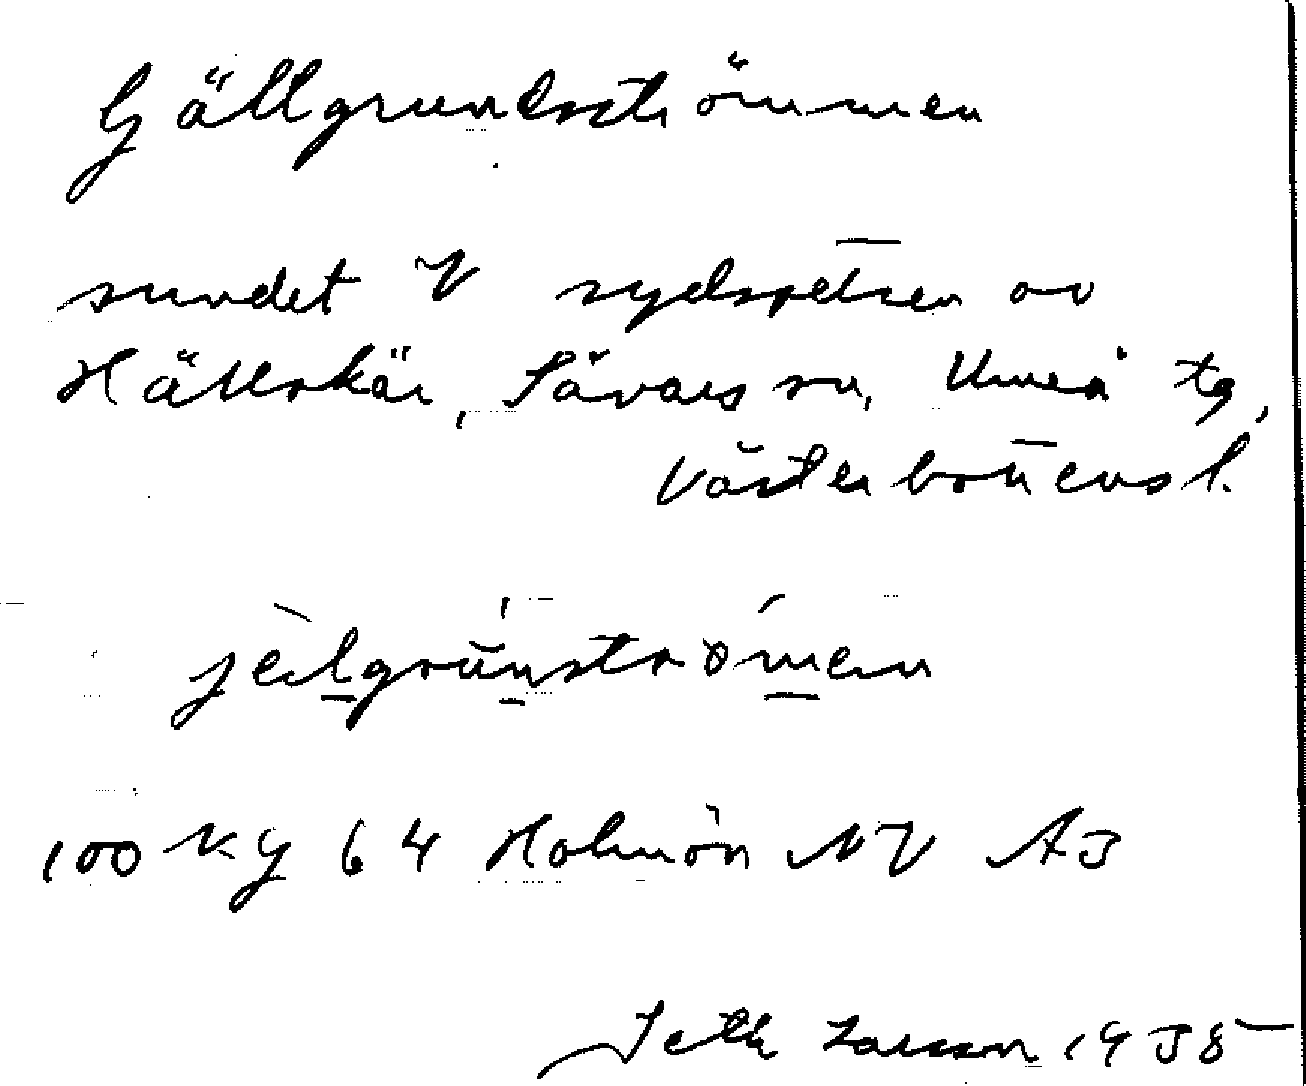 Gällgrundsströmmen
sundet V sydspetsen av
Hällskär, Sävars sn, Umeå tg,
Västerbottens l.
jèlgrúnströ́men
100 KG 64 Holmön NV A3
Seth Larsson 1935